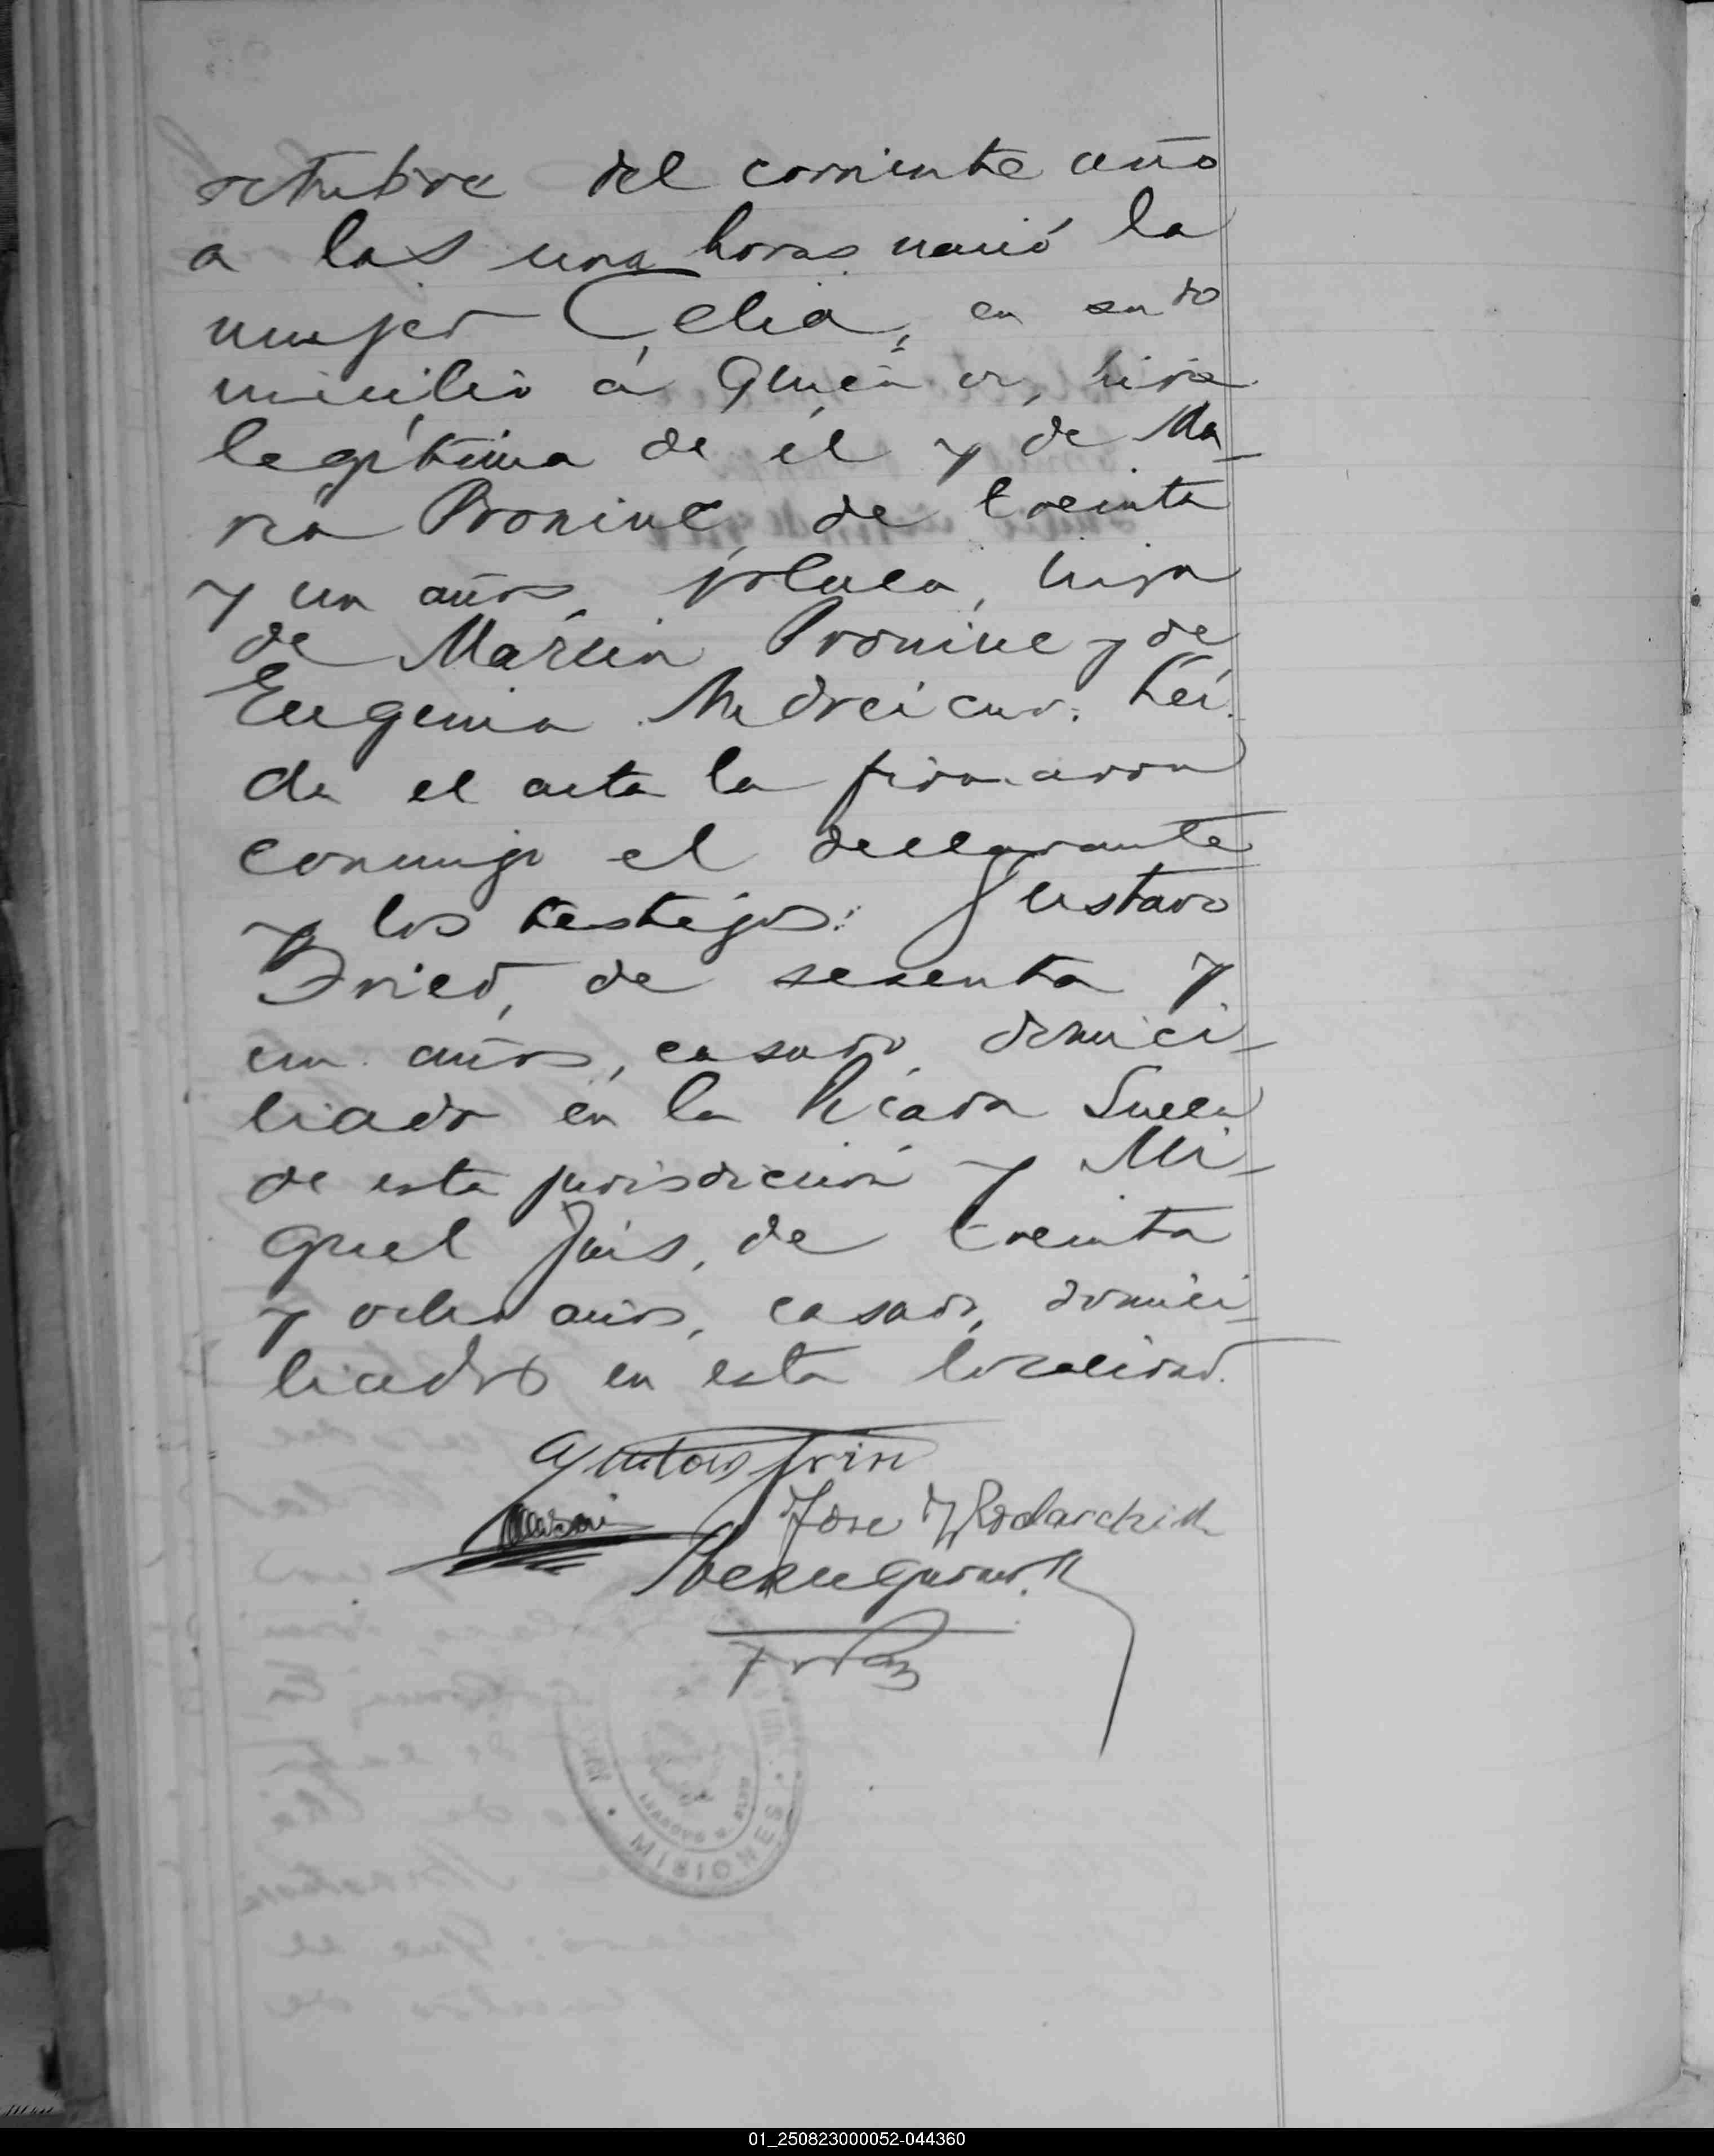 octubre del corriente año
a las una horas nació la
mujer Celia, en su do
micilio á quien vi, hija
legítima de él y de Ma-
ria Pronine, de treinta
y un años, polaca, hija
de Marcin Pronine y de
Eugenia Andreicur. Leí-
da el acta la firmaron
conmigo el declarante
y los testigos: Gustavo
Fried, de sesenta y
un años, casado, domici-
liado en la Picada Sueca
de esta jurisdicción y Mi-
guel Jais, de treinta
y ocho años, casado, domici-
liados en esta localidad.
Jose
MISIONES
01_250823000052-044360